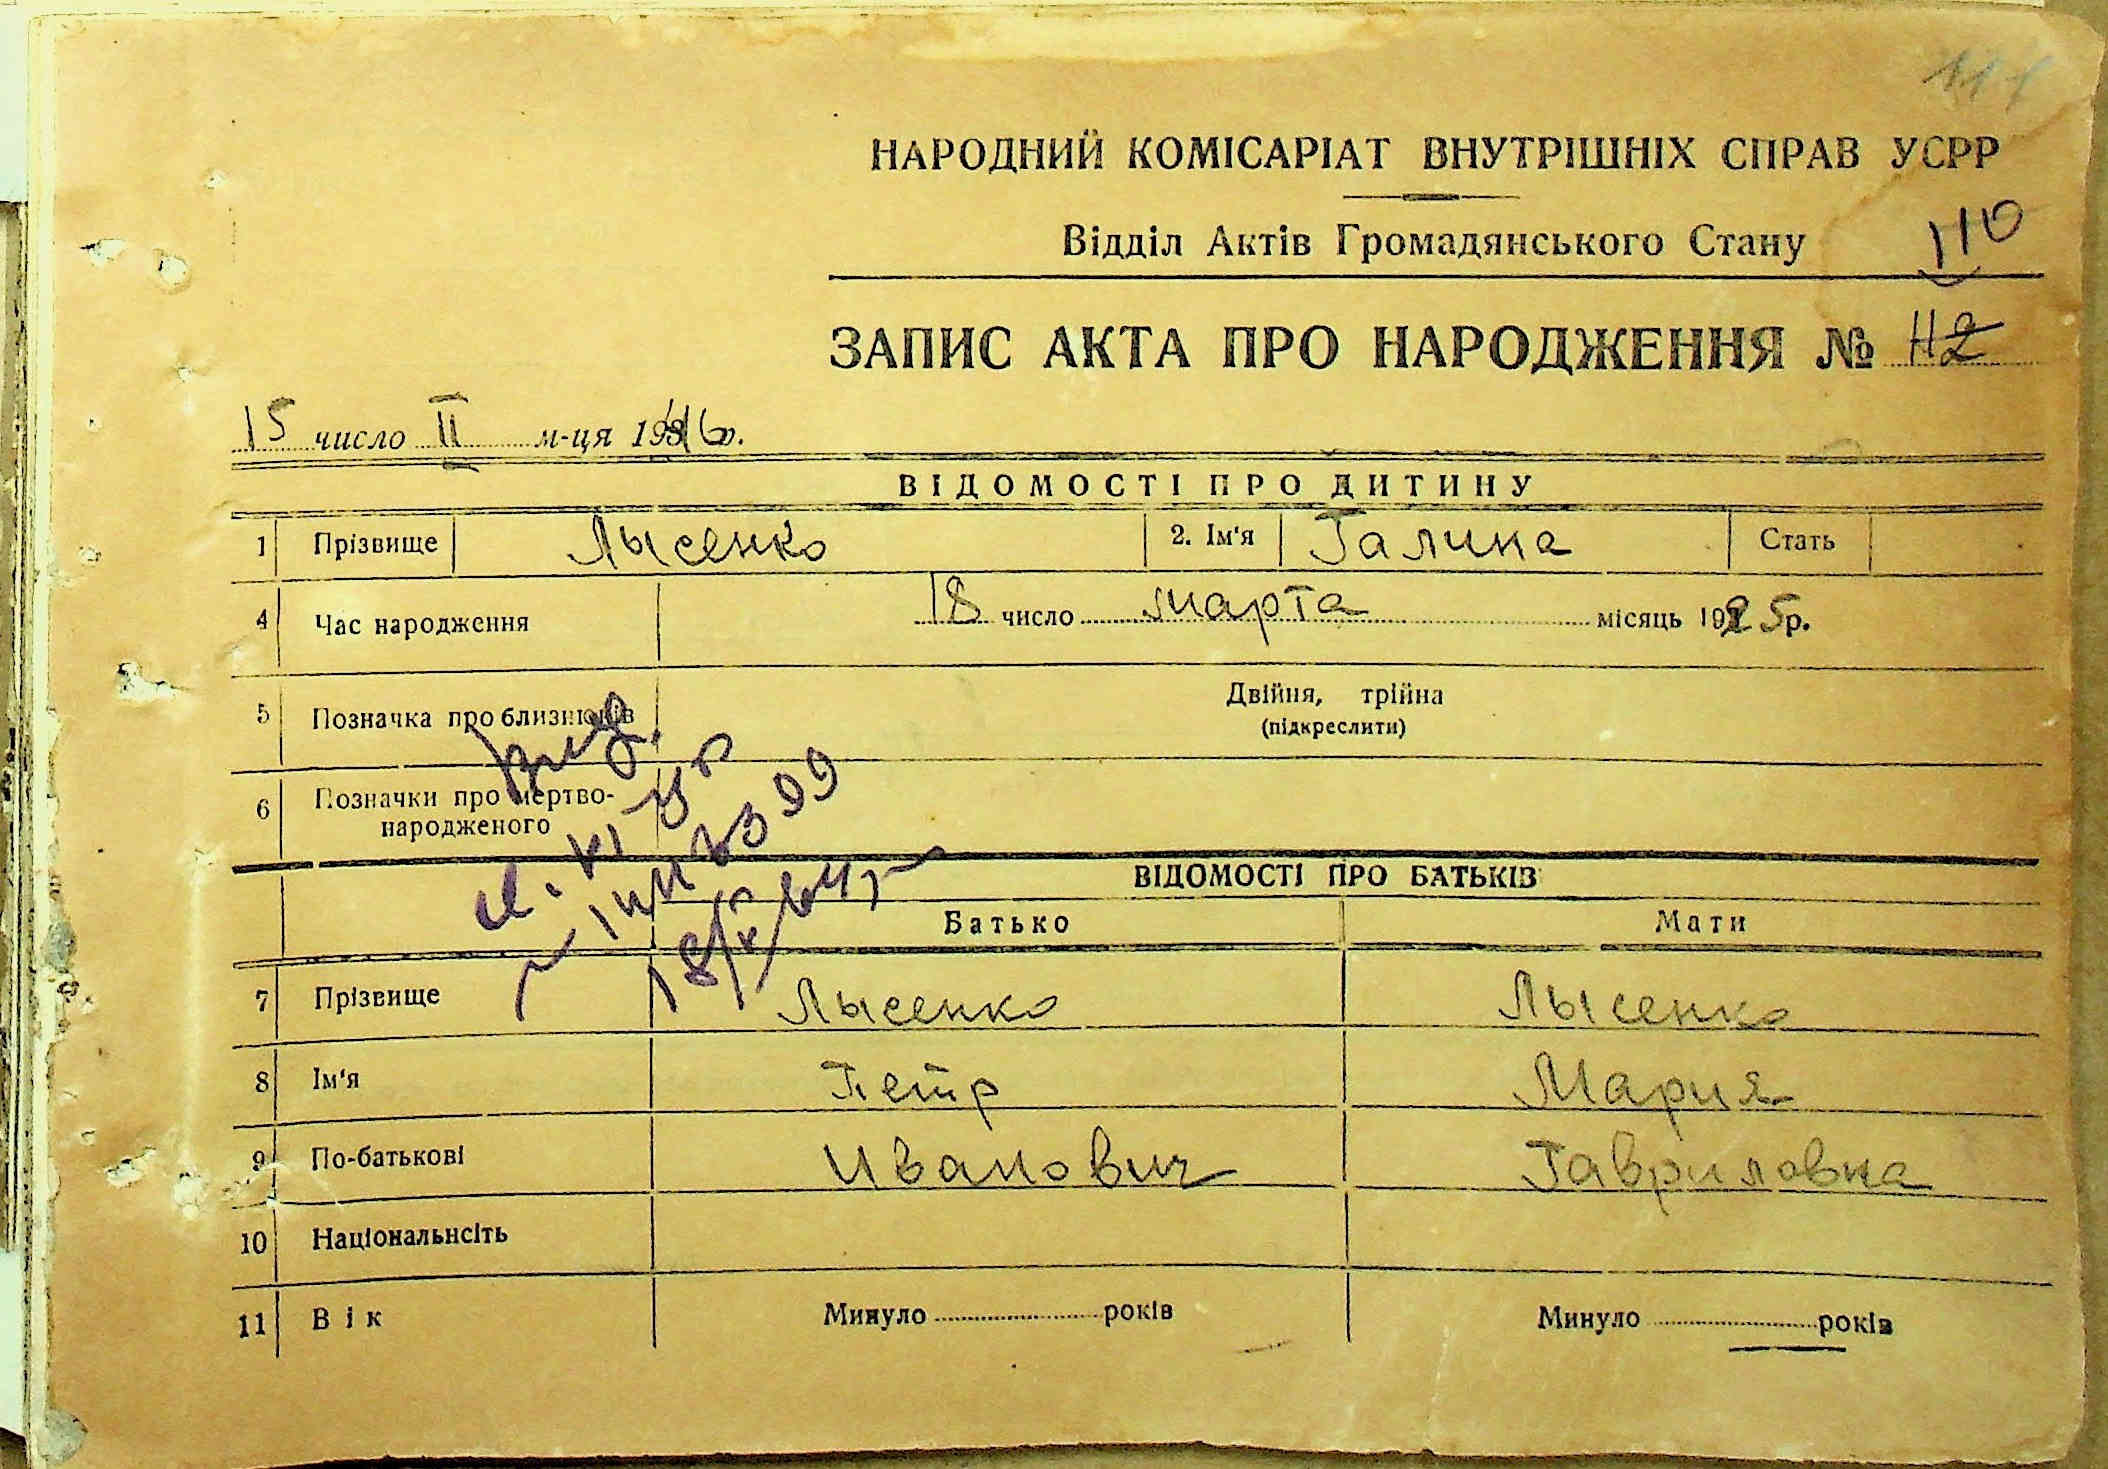 НАРОДНИЙ КОМІСАРІАТ ВНУТРІШНІХ СПРАВ УСРР
Відділ Актів Громадянського Стану
110
ЗАПИС АКТА ПРО НАРОДЖЕННЯ №
15 число II м-ця 1946 р.
ВІДОМОСТІ ПРО ДИТИНУ
1 Прізвище Лысенко 2. Ім'я Галина Стать
4 Час народження 18 число марта місяць 1925р.
5 Позначка про близнюків Двійня, трійна
(підкреслити)
6 Позначки про мертво-
народженого
ВІДОМОСТІ ПРО БАТЬКІВ
Батько Мати
7 Прізвище Лысенко Лысенко
8 Ім'я Петр Мария
9 По-батькові Иванович Гавриловна
10 Національнсіть
11 Вік Минуло років Минуло років